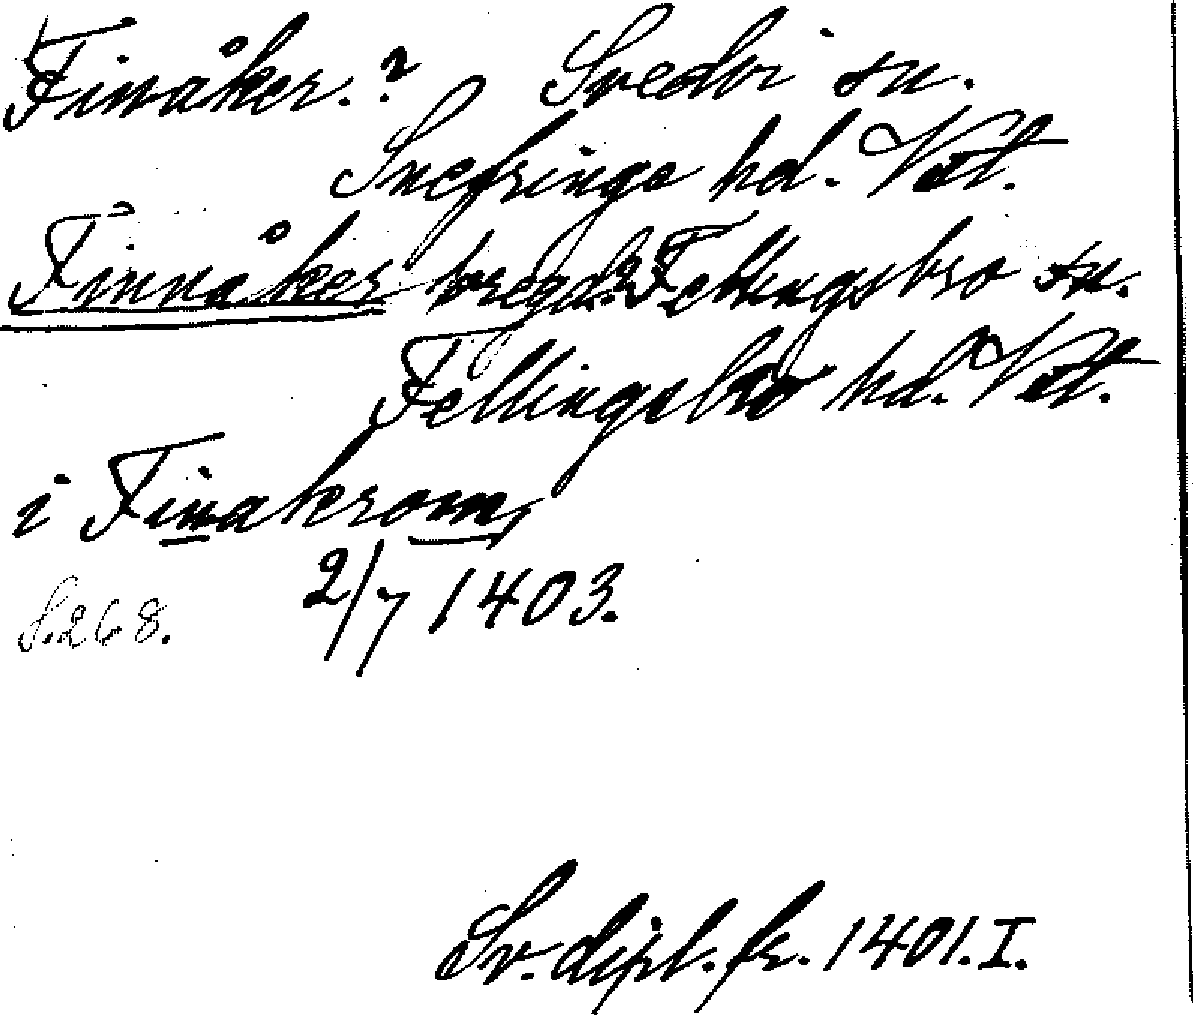 Finåker.? Svedvi sn.
Snefringe hd. Vstl.
Finnåker Fellingsbro sn.
Fellingsbro hd. Vstl.
i Finakrom,
2/7 1403.
S. 268.
Sv. dipl. fr. 1401. I.